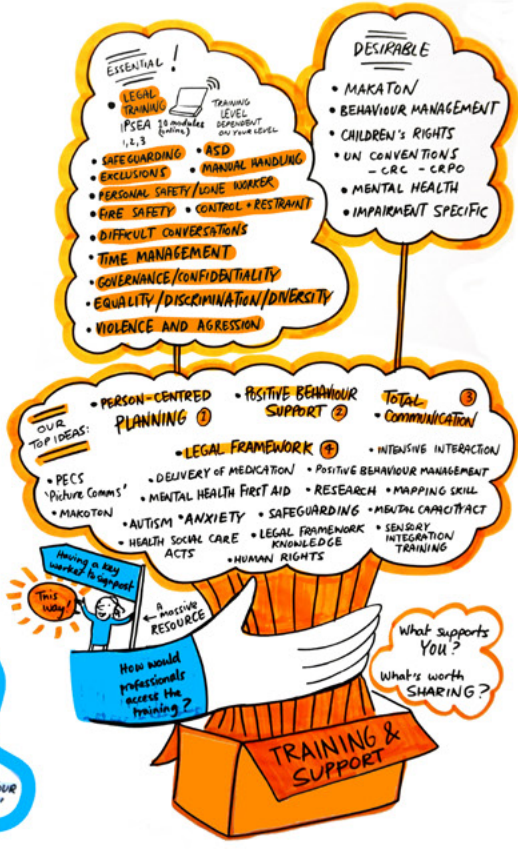 ESSENTIAL !
• LEGAL
TRAINING
IPSEA 10 modules
(online)
1, 2, 3
TRAINING
LEVEL
DEPENDENT
ON YOUR LEVEL
• SAFEGUARDING • ASD
• EXCLUSIONS • MANUAL HANDLING
• PERSONAL SAFETY/LONE WORKER
• FIRE SAFETY • CONTROL + RESTRAINT
• DIFFICULT CONVERSATIONS
• TIME MANAGEMENT
• GOVERNANCE/CONFIDENTIALITY
• EQUALITY/DISCRIMINATION/DIVERSITY
• VIOLENCE AND AGRESSION
DESIRABLE
• MAKATON
• BEHAVIOUR MANAGEMENT
• CHILDREN'S RIGHTS
• UN CONVENTIONS
- CRC - CRPO
• MENTAL HEALTH
• IMPAIRMENT SPECIFIC
OUR
TOP IDEAS:
• PERSON-CENTRED
PLANNING 1
• POSITIVE BEHAVIOUR
SUPPORT 2
TOTAL 3
• COMMUNICATION
• LEGAL FRAMEWORK 4
• INTENSIVE INTERACTION
• PECS
'Picture Comms'
• MAKOTON
• DELIVERY OF MEDICATION • POSITIVE BEHAVIOUR MANAGEMENT
• MENTAL HEALTH FIRST AID • RESEARCH • MAPPING SKILL
• AUTISM • ANXIETY • SAFEGUARDING • MENTAL CAPACITY ACT
• HEALTH SOCIAL CARE
ACTS
• LEGAL FRAMEWORK
KNOWLEDGE
• SENSORY
INTEGRATION
TRAINING
• HUMAN RIGHTS
Having a key
worker to signpost
This
way!
← A
massive
RESOURCE
How would
professionals
access the
training?
What supports
YOU?
What's worth
SHARING?
TRAINING &
SUPPORT